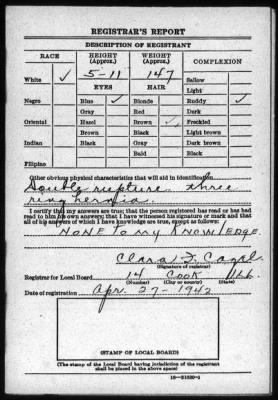 REGISTRAR'S REPORT
DESCRIPTION OF REGISTRANT
RACE HEIGHT (Approx.) WEIGHT (Approx.) COMPLEXION
White ✓ 5-11 147 Sallow
EYES HAIR Light
Negro Blue ✓ Blonde Ruddy ✓
Gray Red Dark
Oriental Hazel Brown ✓ Freckled
Brown Black Light brown
Indian Black Gray Dark brown
Bald Black
Filipino
Other obvious physical characteristics that will aid in identification
Double rupture three
ring hernia.
I certify that my answers are true; that the person registered has read or has had
read to him his own answers; that I have witnessed his signature or mark and that
all of his answers of which I have knowledge are true, except as follows:
NONE TO my KNOWLEDGE.
Clara F.
(Signature of registrar)
Registrar for Local Board 14 COOK ILL
(Number) (City or county)
Date of registration Apr. 27-1942
(STAMP OF LOCAL BOARD)
(The stamp of the Local Board having jurisdiction of the registrant
shall be placed in the above space)